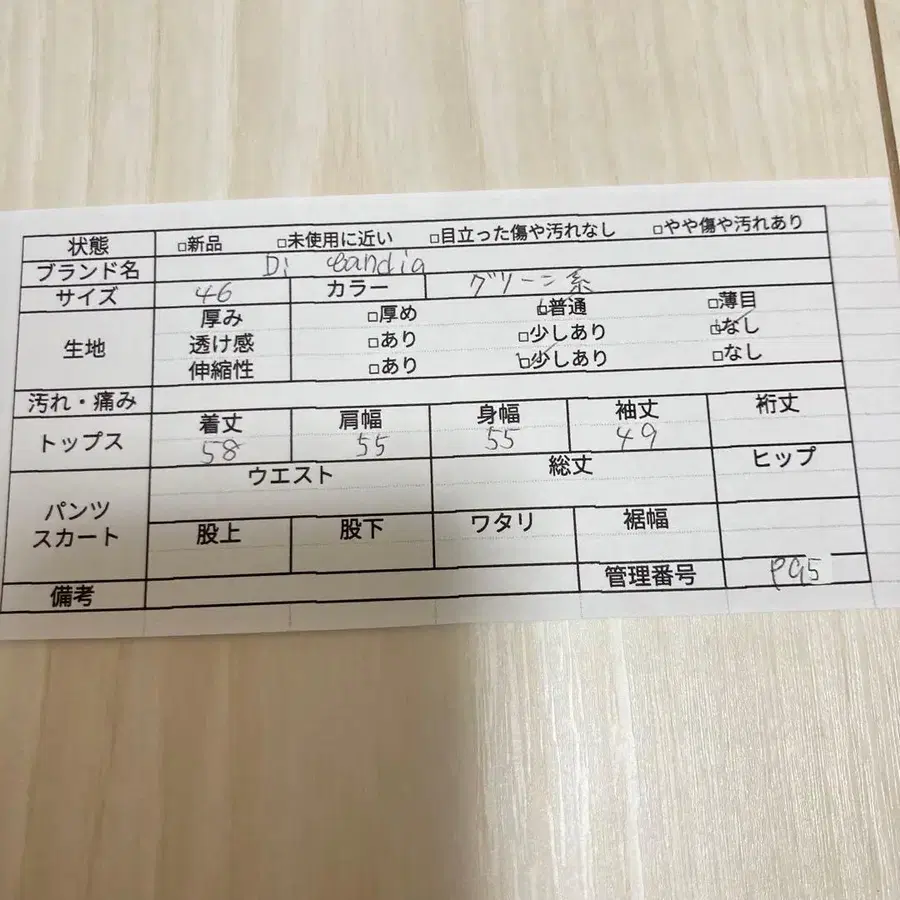 状態 □新品 □未使用に近い □目立った傷や汚れなし □やや傷や汚れあり
ブランド名 Di Candia
サイズ 46 カラー グリーン系
生地 厚み □厚め □普通 □薄目
透け感 □あり □少しあり □なし
伸縮性 □あり □少しあり □なし
汚れ・痛み
トップス 着丈 肩幅 身幅 袖丈 裄丈
58 55 55 49
パンツ スカート ウエスト 総丈 ヒップ
股上 股下 ワタリ 裾幅
備考 管理番号 P95